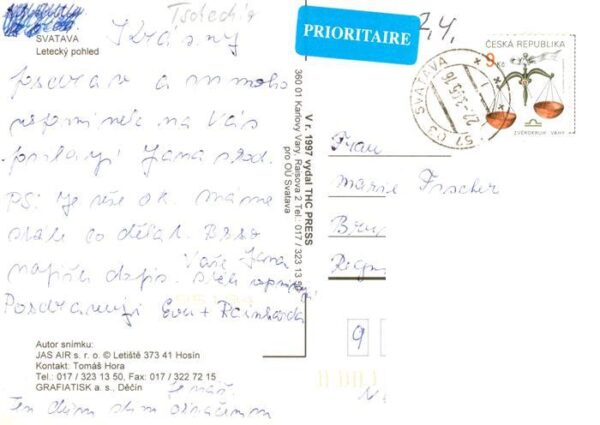 Tschechia
SVATAVA
Letecký pohled
Krásný
pozdrav a mnoho
vzpomínek na Vás
posílají Jana a rod.
PS: Je vše ok. máme
stále co dělat. Brzo
napíšu dopis.
Vaše Jana
Pozdravuji Evu + Reinharda
Autor snímku:
JAS AIR s. r. o. © Letiště 373 41 Hosín
Kontakt: Tomáš Hora
Tel.: 017 / 323 13 50, Fax: 017 / 322 72 15
GRAFIATISK a. s., Děčín
Je náš.
Ten dům jsem označila
V r. 1997 vydal THC PRESS
360 01 Karlovy Vary, Raisova 2 Tel.: 017 / 323 13
pro OÚ Svatava
PRIORITAIRE
24.
357 03 SVATAVA
ČESKÁ REPUBLIKA
9 Kč
ZVĚROKRUH - VÁHY
Frau
Marie Fischer
9